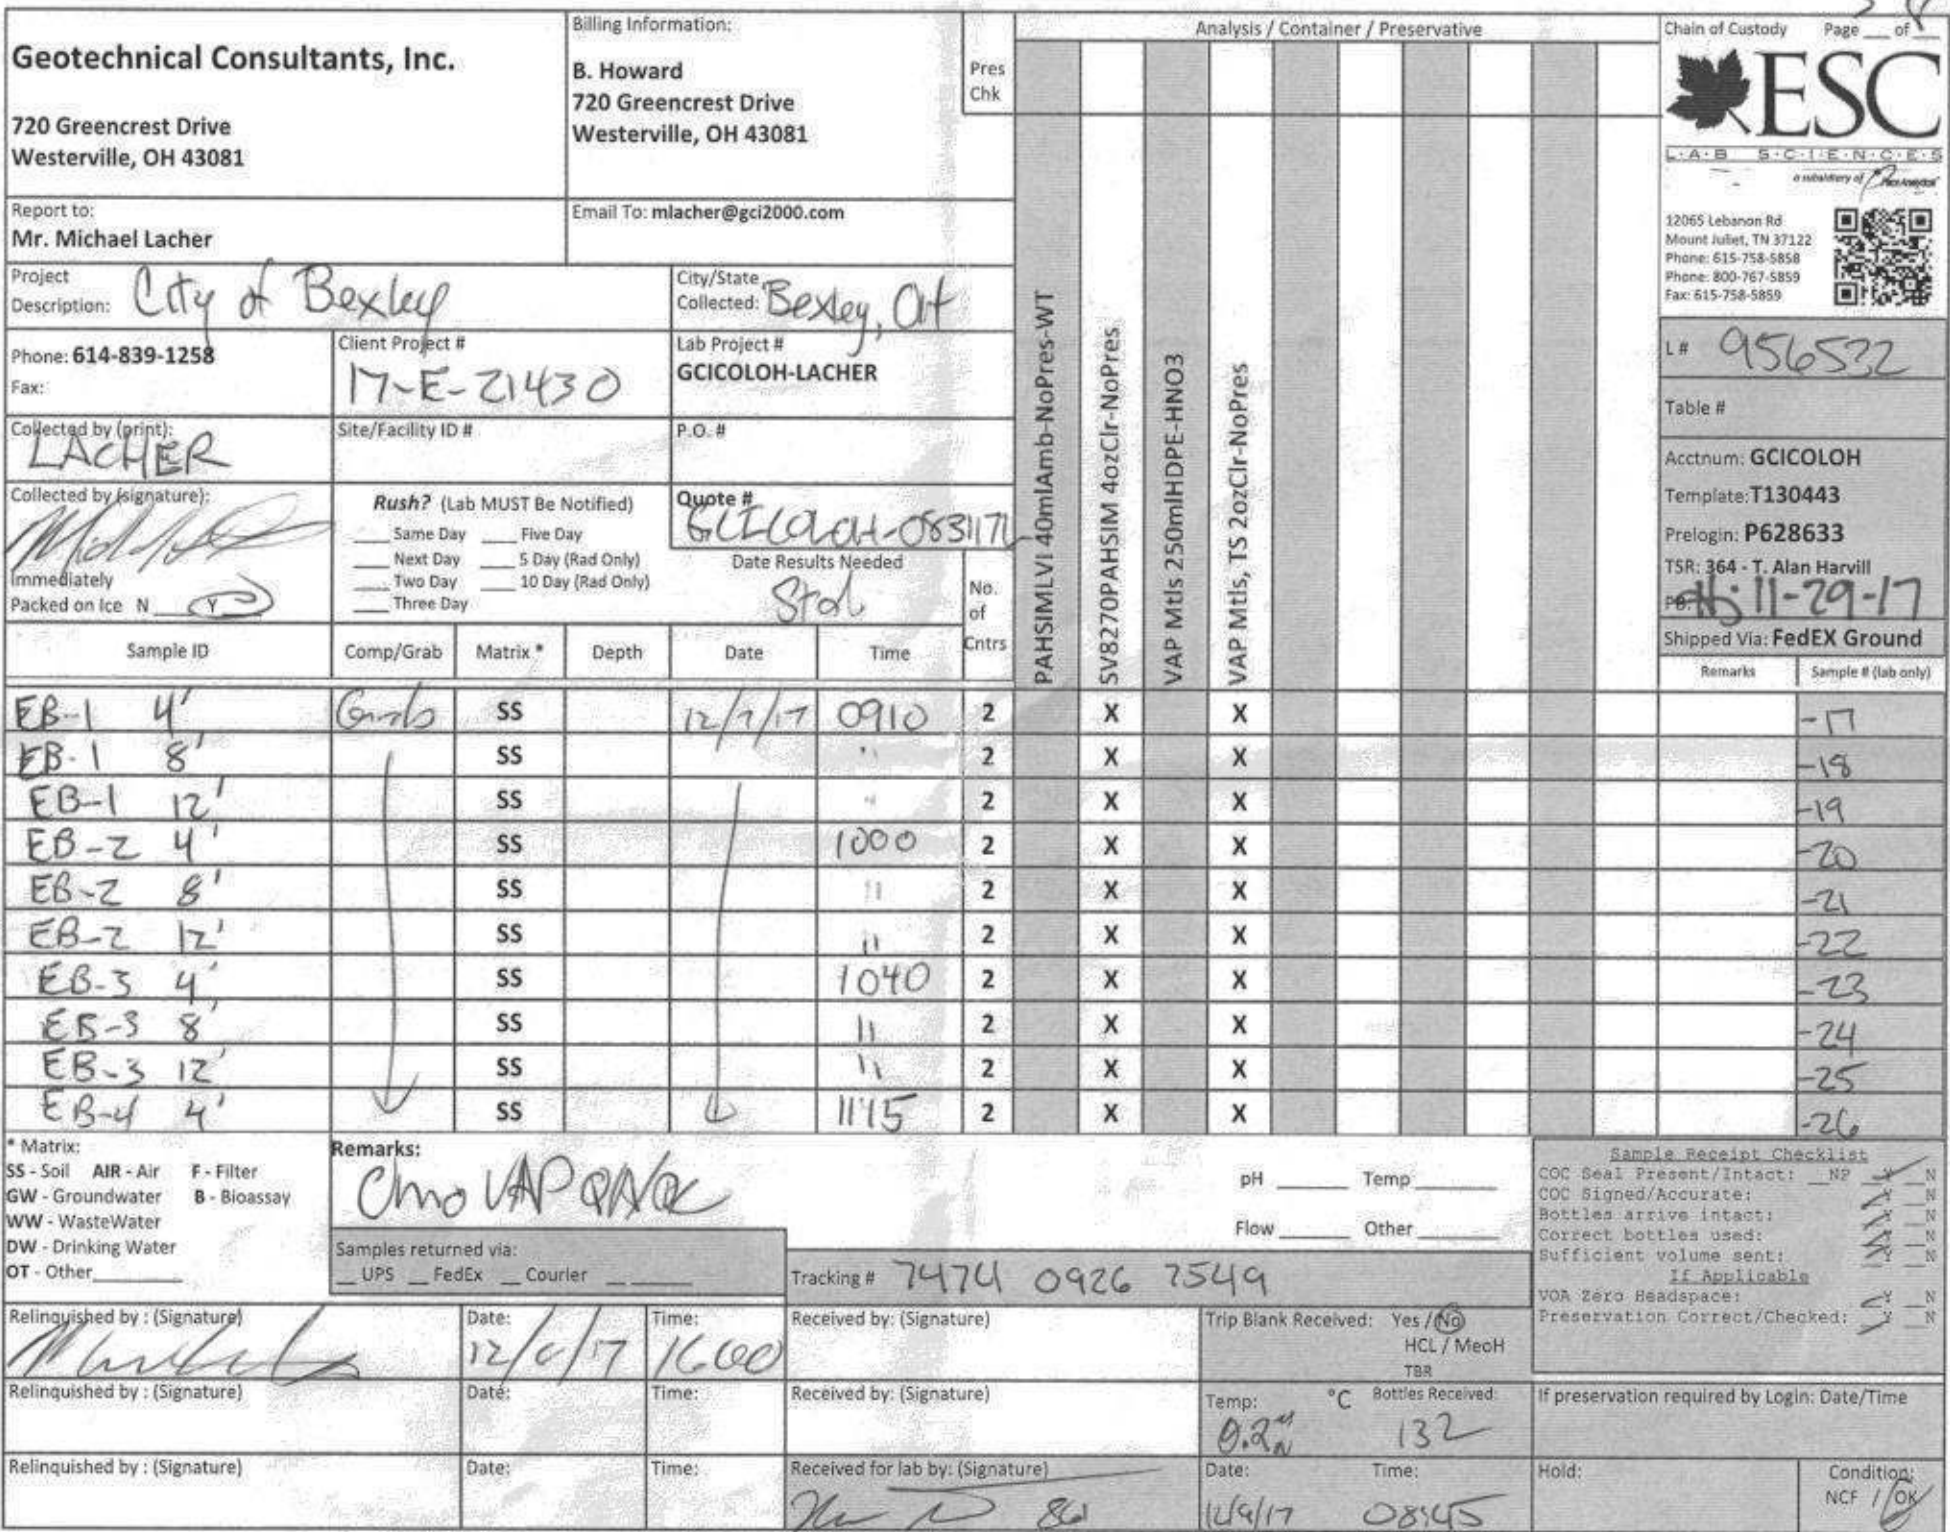 Geotechnical Consultants, Inc.
720 Greencrest Drive
Westerville, OH 43081
Billing Information:
B. Howard
720 Greencrest Drive
Westerville, OH 43081
Pres
Chk
Analysis / Container / Preservative
Chain of Custody Page of
ESC
L·A·B S·C·I·E·N·C·E·S
a subsidiary of
12065 Lebanon Rd
Mount Juliet, TN 37122
Phone: 615-758-5858
Phone: 800-767-5859
Fax: 615-758-5859
Report to:
Mr. Michael Lacher
Email To: mlacher@gci2000.com
Project
Description: City of Bexley
City/State
Collected: Bexley, OH
Phone: 614-839-1258
Fax:
Client Project #
17-E-21430
Lab Project #
GCICOLOH-LACHER
Collected by (print):
LACHER
Site/Facility ID #
P.O. #
Collected by (signature):
Immediately
Packed on Ice N Y
Rush? (Lab MUST Be Notified)
Same Day Five Day
Next Day 5 Day (Rad Only)
Two Day 10 Day (Rad Only)
Three Day
Quote #
Date Results Needed
No.
of
Cntrs
PAHSIMLVI 40mlAmb-NoPres-WT
SV8270PAHSIM 4ozClr-NoPres
VAP Mtls 250mlHDPE-HNO3
VAP Mtls, TS 2ozClr-NoPres
L # 956532
Table #
Acctnum: GCICOLOH
Template: T130443
Prelogin: P628633
TSR: 364 - T. Alan Harvill
PB: 11-29-17
Shipped Via: FedEX Ground
Sample ID Comp/Grab Matrix * Depth Date Time Remarks Sample # (lab only)
EB-1 4' Grab SS 12/7/17 0910 2 X X -17
EB-1 8' SS " 2 X X -18
EB-1 12' SS " 2 X X -19
EB-2 4' SS 1000 2 X X -20
EB-2 8' SS " 2 X X -21
EB-2 12' SS " 2 X X -22
EB-3 4' SS 1040 2 X X -23
EB-3 8' SS " 2 X X -24
EB-3 12' SS " 2 X X -25
EB-4 4' SS 1145 2 X X -26
* Matrix:
SS - Soil AIR - Air F - Filter
GW - Groundwater B - Bioassay
WW - WasteWater
DW - Drinking Water
OT - Other
Remarks:
VAP
pH Temp
Flow Other
Samples returned via:
UPS FedEx Courier
Tracking # 7474 0926 7549
Sample Receipt Checklist
COC Seal Present/Intact: NP Y N
COC Signed/Accurate: Y N
Bottles arrive intact: Y N
Correct bottles used: Y N
Sufficient volume sent: Y N
If Applicable
VOA Zero Headspace: Y N
Preservation Correct/Checked: Y N
Relinquished by : (Signature) Date: Time: 1600
Received by: (Signature)
Trip Blank Received: Yes / No
HCL / MeoH
TBR
Relinquished by : (Signature) Date: Time:
Received by: (Signature)
Temp: °C Bottles Received:
0.2 132
If preservation required by Login: Date/Time
Relinquished by : (Signature) Date: Time:
Received for lab by: (Signature)
Date: Time:
12/9/17 0845
Hold:
Condition:
NCF / OK